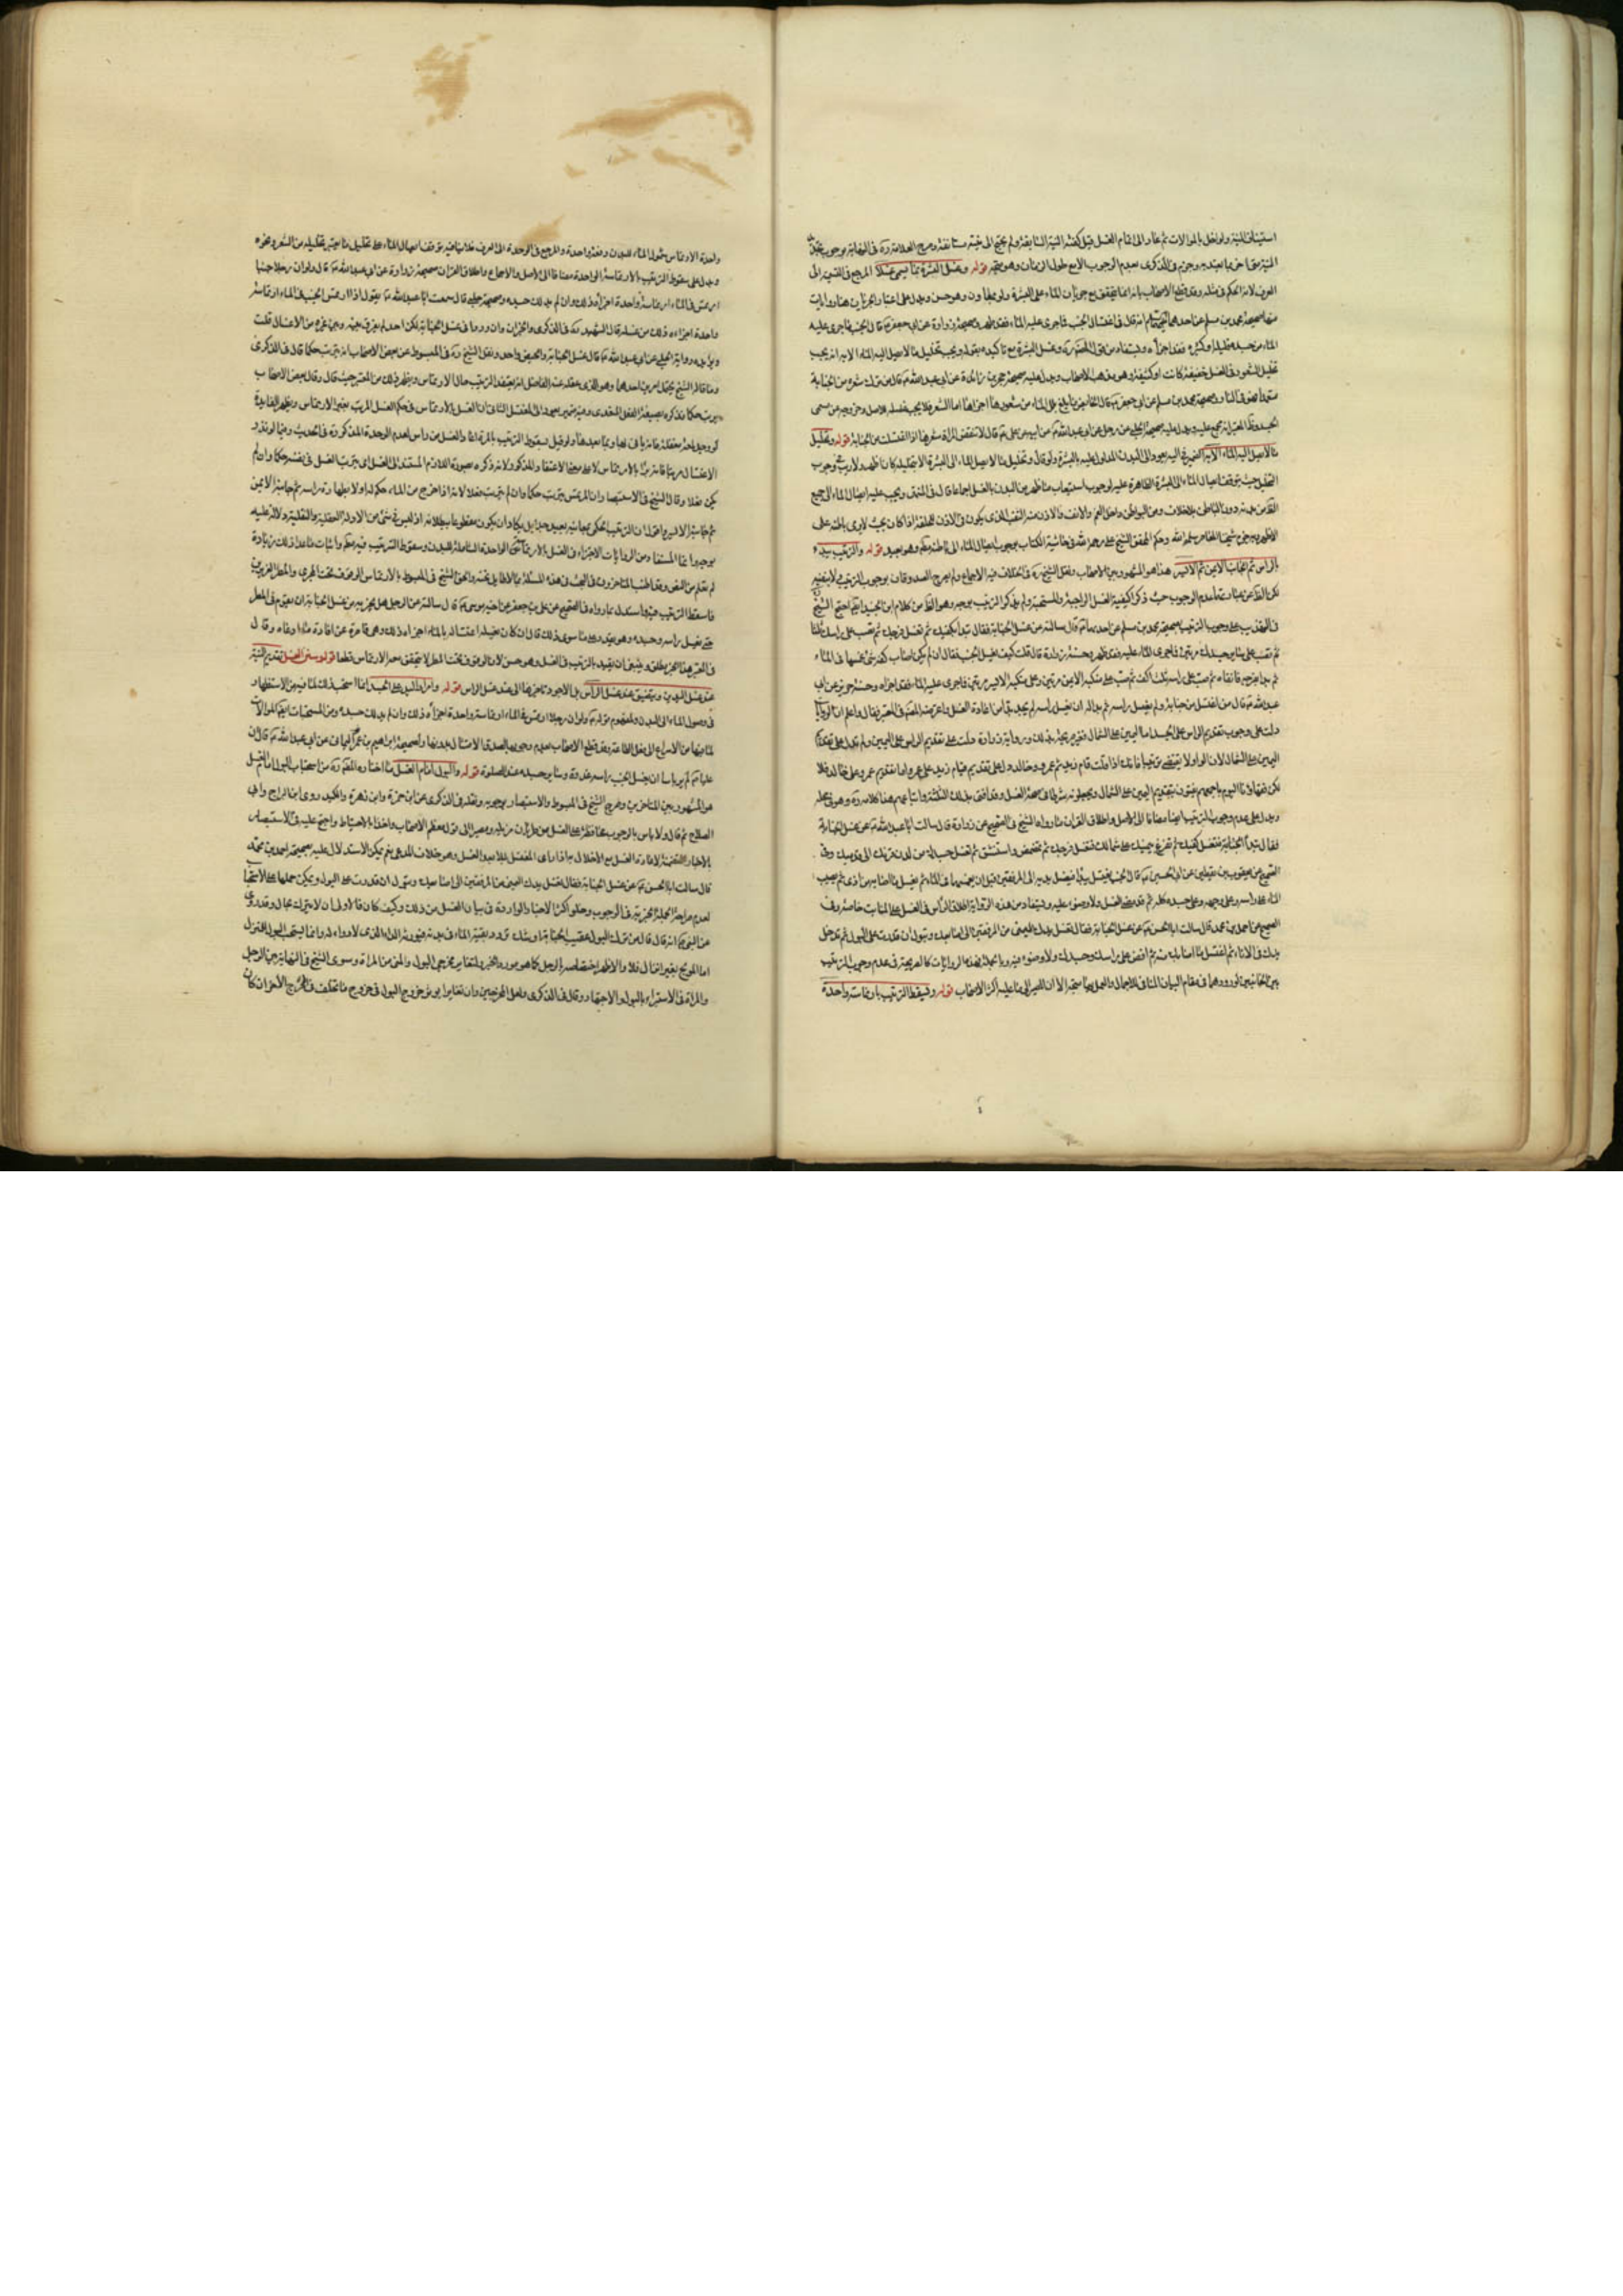 استيناف النية ولو اخل بالموالات ثم عاد الى اتمام الغسل قبل كفته النية السابقة ولم يحتج الى نية مستانفة وصرح العلامة ره في النهاية بوجوب تجديد
النية متى اخر بما يعتد به وجزم في الذكرى بعدم الوجوب الا مع طول الزمان وهو قوله وغسل البشرة بما يسمى غسلا المرجع في الغسل الى
العرف لانه المحكم في مثله وقد قطع الاصحاب بانه انما يتحقق مع جريان الماء على البشرة ولو بمعاون وهو حسن ويدل على اعتبار الجريان هنا روايات
منها صحيحة محمد بن مسلم عن احدهما انه قال في اغتسال الجنب فما جرى عليه الماء فقد طهر وصحيحة زرارة عن ابي جعفر ع قال الجنب ما جرى عليه
الماء من جسده قليله او كثيره فقد اجزأه ويستفاد من قول المصنف ره وغسل البشرة مع تاكيده بقوله ويجب تخليل ما لا يصل اليه الماء الا به انه لا يجب
غسل الشعر في الغسل خفيفة كانت او كثيفة وهو مذهب الاصحاب ويدل عليه صحيحة حجر بن زائدة عن ابي عبد الله ع قال من ترك شعرة من الجنابة
متعمدا فهو في النار وصحيحة محمد بن مسلم عن ابي جعفر ع قال الحائض ما بلغ بلل الماء من شعرها اجزاها اما الشعر فلا يجب غسله للاصل وخروجه عن مسمى
الجسد ويدل عليه صحيحة الحلبي عن رجل عن ابي عبد الله ع عن ابيه عن علي ع قال لا تنقض المراة شعرها اذا اغتسلت من الجنابة قوله وتخليل
ما لا يصل اليه الماء الا به الضمير في اليه يعود الى البدن المدلول عليه بالبشرة ولو قال وتخليل ما لا يصل الماء الى البشرة الا بتخليله كان اظهر ولا ريب في وجوب
التخليل حيث يتوقف ايصال الماء الى البشرة الظاهرة عليه لوجوب استيعاب ما ظهر من البدن بالغسل اجماعا قال في المنتهى ويجب عليه ايصال الماء الى جميع
الظاهر من بدنه دون الباطن بلا خلاف ومن البواطن داخل الفم والانف والاذن ومنه الثقب الذي يكون في الاذن للحلقة اذا كان بحيث لا يرى باطنه على
الاظهر وبه جزم شيخنا المعاصر سلمه الله وحكم المحقق الشيخ علي رحمه الله في حاشية الكتاب بوجوب ايصال الماء الى باطنه مطلقا وهو بعيد قوله والترتيب يبدء
بالراس ثم الجانب الايمن ثم الايسر هذا هو المشهور بين الاصحاب ونقل الشيخ ره في الخلاف فيه الاجماع ولم يصرح الصدوقان بوجوب الترتيب ولا بنفيه
لكن الظاهر من عبارتهما عدم الوجوب حيث ذكرا كيفية الغسل الواجبة والمستحبة ولم يذكرا الترتيب بوجه وهو الظاهر من كلام ابن الجنيد ايضا احتج الشيخ
في التهذيب على وجوب الترتيب بصحيحة محمد بن مسلم عن احدهما ع قال سالته عن غسل الجنابة فقال تبدأ بكفيك ثم تغسل فرجك ثم تصب على راسك ثلثا
ثم تصب على سائر جسدك مرتين فما جرى الماء عليه فقد طهر وحسنة زرارة قال قلت كيف يغتسل الجنب فقال ان لم يكن اصاب كفه شئ غمسها في الماء
ثم بدا بفرجه فانقاه ثم صب على راسه ثلث اكف ثم صب على منكبه الايمن مرتين وعلى منكبه الايسر مرتين فما جرى عليه الماء فقد اجزاه وحسنة حريز عن ابي
عبد الله ع قال من اغتسل من جنابة ولم يغسل راسه ثم بدا له ان يغسل راسه لم يجد بدا من اعادة الغسل واعترضه المصنف في المعتبر فقال واعلم ان الروايات
دلت على وجوب تقديم الراس على الجسد اما اليمين على الشمال فغير صريحة بذلك ورواية زرارة دلت على تقديم الراس على اليمين ولم تدل على تقديم
اليمين على الشمال لان الواو لا يقتضي ترتيبا فانك اذا قلت قام زيد ثم عمرو وخالد دل على تقديم قيام زيد على عمرو اما تقديم عمرو على خالد فلا
لكن فقهاؤنا اليوم باجمعهم يفتون بتقديم اليمين على الشمال ويجعلونه شرطا في صحة الغسل وقد افتى بذلك الثلثة واتباعهم هذا كلامه ره وهو في محله
ويدل على عدم وجوب الترتيب ايضا مضافا الى الاصل واطلاق القران ما رواه الشيخ في الصحيح عن زرارة قال سالت ابا عبد الله ع عن غسل الجنابة
فقال تبدأ فتغسل كفيك ثم تفرغ بيمينك على شمالك فتغسل فرجك ثم تمضمض واستنشق ثم تغسل جسدك من لدن قرنك الى قدميك وفي
الصحيح عن يعقوب بن يقطين عن ابي الحسن ع قال الجنب يغتسل يبدأ فيغسل يديه الى المرفقين قبل ان يغمسهما في الماء ثم يغسل ما اصابه من اذى ثم يصب
الماء على راسه وعلى وجهه وعلى جسده كله ثم قد قضى الغسل ولا وضوء عليه ويستفاد من هذه الرواية اطلاق الراس في الغسل على المنابت خاصة وفي
الصحيح عن احمد بن محمد قال سالت ابا الحسن ع عن غسل الجنابة فقال تغسل يدك اليمنى من المرفقين الى اصابعك وتبول ان قدرت على البول ثم تدخل
يدك في الاناء ثم اغسل ما اصابك منه ثم افض على راسك وجسدك ولا وضوء فيه وبالجملة فهذه الروايات كالصريحة في عدم وجوب الترتيب
بين الجانبين لورودها في مقام البيان المنافي للاجمال والعمل بها متجه الا ان المصير الى ما عليه اكثر الاصحاب قوله ويسقط الترتيب بارتماسة واحدة
واحدة الارتماس شمول الماء للبدن دفعة واحدة والمرجع في الوحدة الى العرف فلا ينافيه توقف ايصال الماء على تخليل ما يعتبر تخليله من الشعر ونحوه
ويدل على سقوط الترتيب بالارتماسة الواحدة مضافا الى الاصل والاجماع واطلاق القران صحيحة زرارة عن ابي عبد الله ع قال ولو ان رجلا جنبا
ارتمس في الماء ارتماسة واحدة اجزأه ذلك وان لم يدلك جسده وصحيحة الحلبي قال سمعت ابا عبد الله ع يقول اذا ارتمس الجنب في الماء ارتماسة
واحدة اجزاه ذلك من غسله قال الشهيد ره في الذكرى والخبران وان وردا في غسل الجنابة لكن احد لم يفرق بينه وبين غيره من الاغسال قلت
ويؤيده رواية الحلبي عن ابي عبد الله ع قال غسل الجنابة والحيض واحد ونقل الشيخ ره في المبسوط عن بعض الاصحاب انه يترتب حكما قال في الذكرى
وما قاله الشيخ يحتمل امرين احدهما وهو الذي عقله عنه الفاضل انه يعتقد الترتيب حال الارتماس ويظهر ذلك من المعتبر حيث قال وقال بعض الاصحاب
يرتب حكما فذكره بصيغة الفعل المتعدي وفيه ضمير يعود الى المغتسل الثاني ان الغسل بالارتماس في حكم الغسل المرتب بغير الارتماس ويظهر الفائدة
لو وجد لمعة مغفلة فانه ياتي بها وبما بعدها ولو قيل بسقوط الترتيب بالمرة اعاد الغسل من راس لعدم الوحدة المذكورة في الحديث وفيما لو نذر
الاغتسال مرتبا فانه يبرأ بالارتماس لا على معنى الاعتقاد المذكور لانه ذكره بصورة اللازم المستند الى الغسل اي يترتب الغسل في نفسه حكما وان لم
يكن فعلا وقال الشيخ في الاستبصار وان المرتمس يترتب حكما وان لم يترتب فعلا لانه اذا خرج من الماء حكم له اولا بطهارة راسه ثم جانبه الايمن
ثم جانبه الايسر واقول ان الترتيب الحكمي بمعانيه بعيد جدا بل يكاد ان يكون مقطوعا ببطلانه اذ ليس في شئ من الادلة العقلية والنقلية دلالة عليه
بوجه وانما المستفاد من الروايات الاجتزاء في الغسل بالارتماسة الواحدة الشاملة للبدن وسقوط الترتيب فيه مطلقا واثبات ما عدا ذلك زيادة
لم تعلم من النص وقد اطنب المتاخرون في البحث في هذه المسئلة بما لا طايل تحته والحق الشيخ في المبسوط بالارتماس الوقوف تحت المجرى والمطر الغزيرين
فاسقط الترتيب فيهما واستدل بما رواه في الصحيح عن علي بن جعفر عن اخيه موسى ع قال سالته عن الرجل هل يجزيه من غسل الجنابة ان يقوم في المطر
حتى يغسل راسه وجسده وهو يقدر على ما سوى ذلك قال ان كان يغسله اغتساله بالماء اجزاه ذلك وهي قاصرة عن افادة ما ادعاه وقال
في المعتبر هذا الخبر مطلق وينبغي ان يقيد بالترتيب في الغسل وهو حسن لان الوقوف تحت المطر لا يتحقق معه الارتماس قطعا قوله وسنن الغسل تقديم النية
عند غسل اليدين وتتضيق عند غسل الراس بل الاجود تاخيرها الى عند غسل الراس قوله وامرار اليد على الجسد انما استحب ذلك لما فيه من الاستظهار
في وصول الماء الى البدن ولمفهوم قوله ع ولو ان رجلا ارتمس في الماء ارتماسة واحدة اجزأه ذلك وان لم يدلك جسده ومن المستحبات ايضا الموالات
لما فيها من الاسراع الى فعل الطاعة وقد قطع الاصحاب بعدم وجوبها لصدق الامتثال بدونها ولصحيحة ابراهيم بن عمر اليماني عن ابي عبد الله ع قال ان
عليا ع لم ير باسا ان يغسل الجنب راسه غدوة وسائر جسده عند الصلوة قوله والبول امام الغسل ما اختاره المصنف ره من استحباب البول امام الغسل
هو المشهور بين المتاخرين وصرح الشيخ في المبسوط والاستبصار بوجوبه ونقله في الذكرى عن ابن حمزة وابن زهرة والكيدري وابن البراج وابي
الصلاح ثم قال ولا باس بالوجوب محافظة على الغسل من طريان مزيله ومصيرا الى قول معظم الاصحاب واخذا بالاحتياط واحتج عليه في الاستبصار
بالاخبار المتضمنة لاعادة الغسل مع الاخلال به اذا راى المغتسل بللا بعد الغسل وهو خلاف المدعى نعم يمكن الاستدلال عليه بصحيحة احمد بن محمد
قال سالت ابا الحسن ع عن غسل الجنابة فقال تغسل يدك اليمنى من المرفقين الى اصابعك وتبول ان قدرت على البول ويمكن حملها على الاستحباب
لعدم صراحة الجملة الخبرية في الوجوب وخلو اكثر الاخبار الواردة في بيان الغسل من ذلك وكيف كان فالاولى ان لا يترك بحال وقد روي
عن النبي ص انه قال قال من ترك البول عقيب الجنابة اوشك تردد بقية الماء في بدنه فيورثه الداء الذي لا دواء له وانما يستحب البول للمنزل
اما المولج بغير انزال فلا والاظهر اختصاصه بالرجل كما هو مورد الخبر ولتغاير مخرجي البول والمني من المراة وسوى الشيخ في النهاية بين الرجل
والمراة في الاستبراء بالبول والاجتهاد وقال في الذكرى ولعل المخرجين وان تغايرا يؤثر خروج البول في خروج ما تخلف في المخرج الاخر ان كان